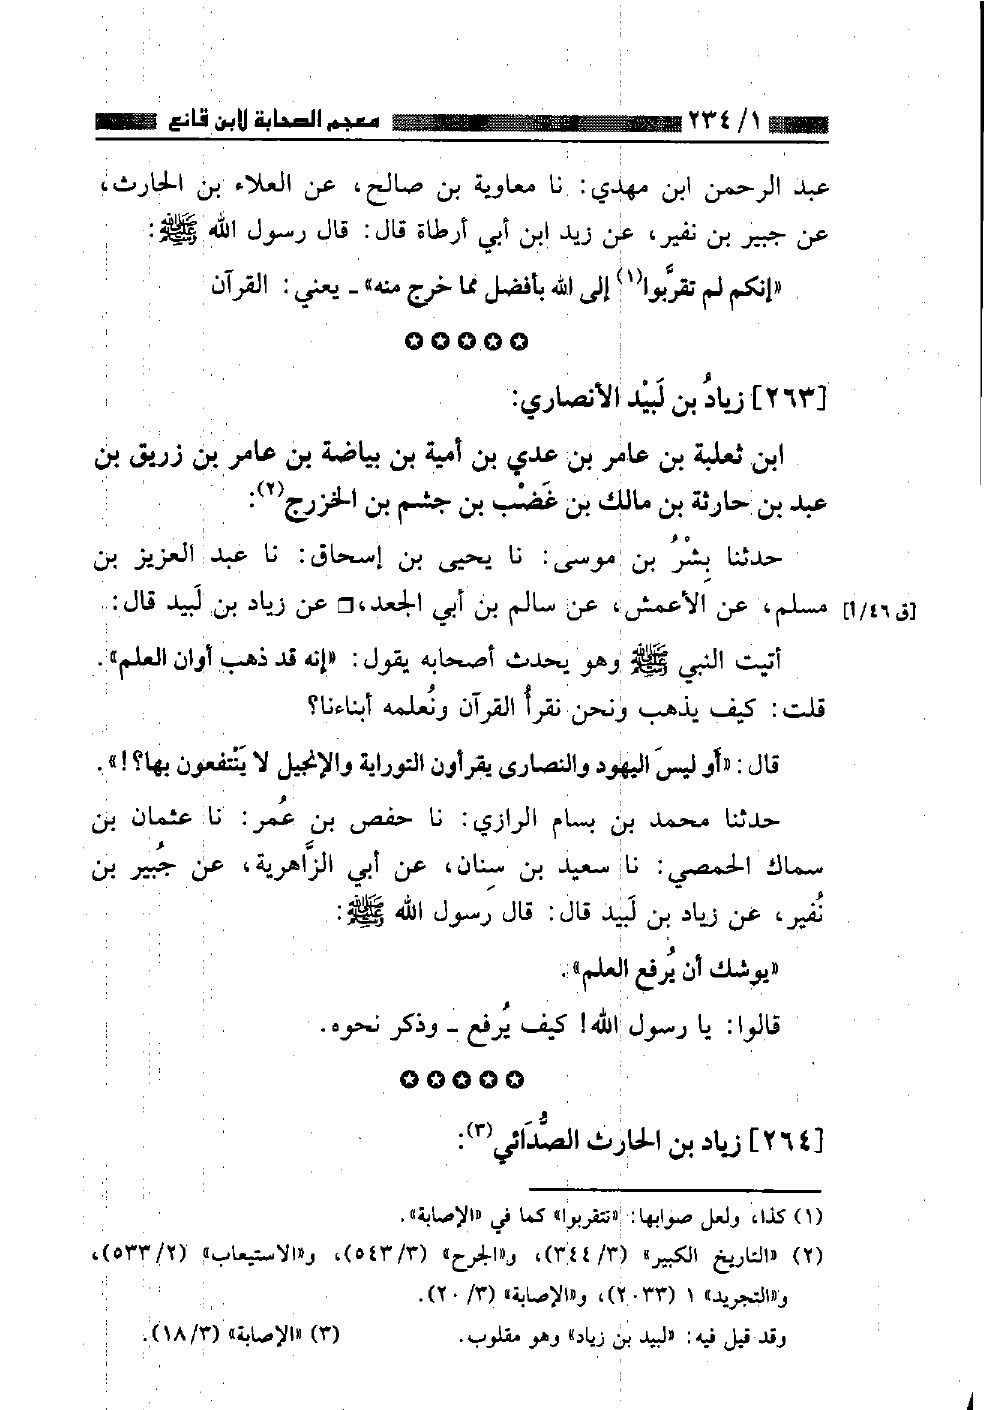 ٢٣٤/١ معجم الصحابة لابن قانع
عبد الرحمن ابن مهدي: نا معاوية بن صالح، عن العلاء بن الحارث،
عن جبير بن نفير، عن زيد ابن أبي أرطاة قال: قال رسول الله ﷺ:
«إنكم لم تقربَّوا(١) إلى الله بأفضل مما خرج منه» ـ يعني: القرآن
✪✪✪✪✪
[٢٦٣] زيادُ بن لَبيْد الأنصاري:
ابن ثعلبة بن عامر بن عدي بن أمية بن بياضة بن عامر بن زريق بن
عبد بن حارثة بن مالك بن غَضْب بن جشم بن الخزرج(٢):
حدثنا بِشْرُ بن موسى: نا يحيى بن إسحاق: نا عبد العزيز بن
مسلم، عن الأعمش، عن سالم بن أبي الجعد،□ عن زياد بن لَبيد قال: [ق ٤٦/أ]
أتيت النبي ﷺ وهو يحدث أصحابه يقول: «إنه قد ذهب أوان العلم».
قلت: كيف يذهب ونحن نقرأُ القرآن ونُعلمه أبناءنا؟
قال: «أو ليسَ اليهود والنصارى يقرأون التوراية والإنجيل لا يَنْتفعون بها؟!».
حدثنا محمد بن بسام الرازي: نا حفص بن عُمر: نا عثمان بن
سماك الحمصي: نا سعيد بن سِنان، عن أبي الزَّاهرية، عن جُبير بن
نُفير، عن زياد بن لَبيد قال: قال رسول الله ﷺ:
«يوشك أن يُرفع العلم».
قالوا: يا رسول الله! كيف يُرفع ـ وذكر نحوه.
✪✪✪✪✪
[٢٦٤] زياد بن الحارث الصُّدَائي(٣):
(١) كذا، ولعل صوابها: «تتقربوا» كما في «الإصابة».
(٢) «التاريخ الكبير» (٣٤٤/٣)، و«الجرح» (٥٤٣/٣)، و«الاستيعاب» (٥٣٣/٢)،
و«التجريد» ١ (٢٠٣٣)، و«الإصابة» (٢٠/٣).
وقد قيل فيه: «لبيد بن زياد» وهو مقلوب. (٣) «الإصابة» (١٨/٣).